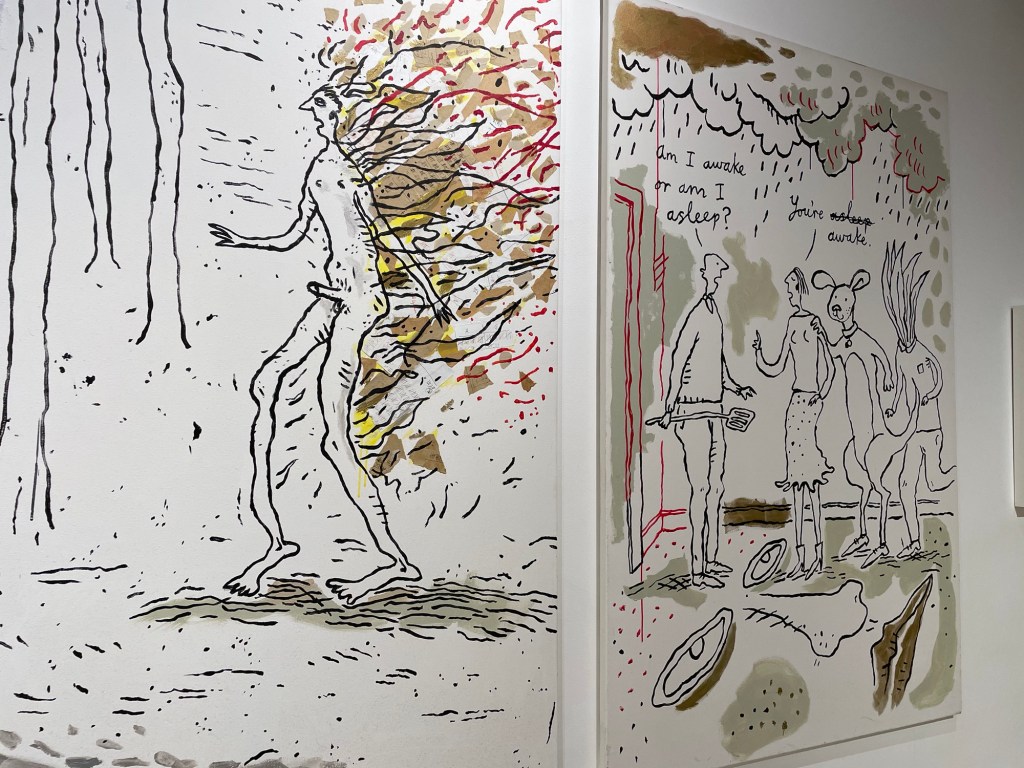 am I awake
or am I
asleep?
You're asleep
awake.